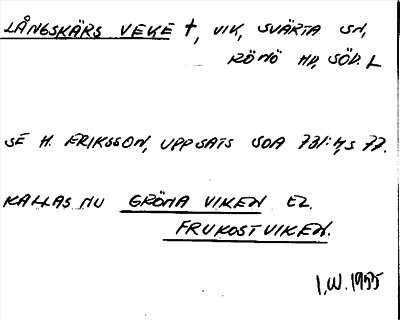 LÅNGSKÄRS VEKE †, VIK, SVÄRTA SN,
RÖNÖ HD, SÖD. L
SE H. ERIKSSON, UPPSATS SOA 731:4, S 77.
KALLAS NU GRÖNA VIKEN EL.
FRUKOSTVIKEN.
I.W. 1955